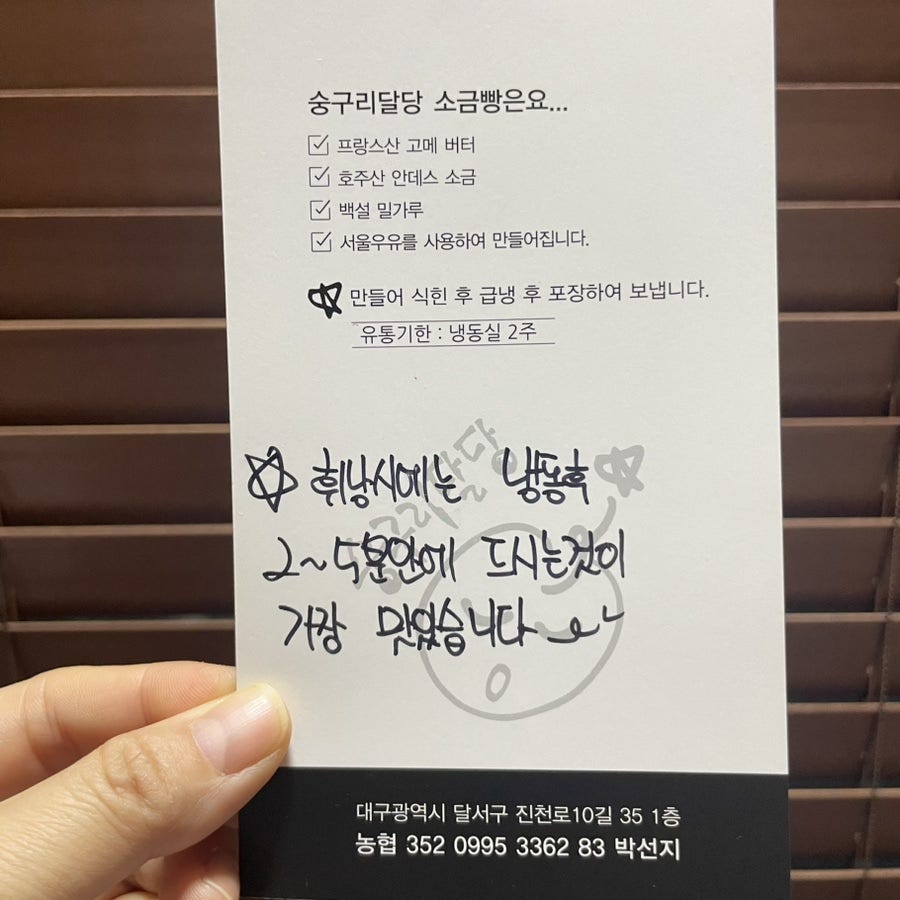 숭구리달당 소금빵은요...
프랑스산 고메 버터
호주산 안데스 소금
백설 밀가루
서울우유를 사용하여 만들어집니다.
만들어 식힌 후 급냉 후 포장하여 보냅니다.
유통기한 : 냉동실 2주
숭구리달당
휘낭시에는 냉동후
2~5분안에 드시는것이
가장 맛있습니다
대구광역시 달서구 진천로10길 35 1층
농협 352 0995 3362 83 박선지